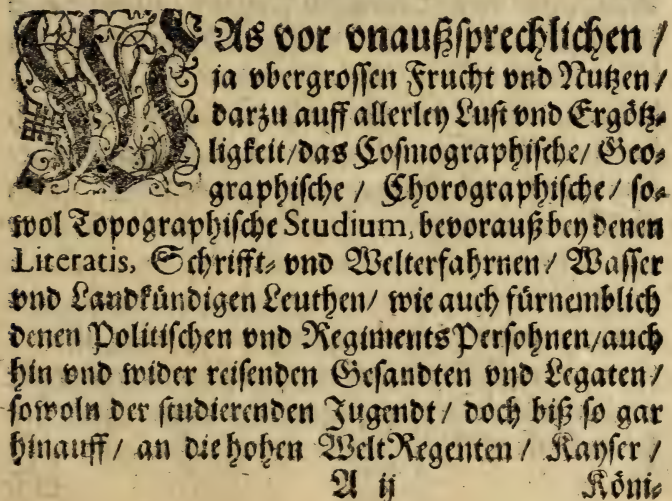 WAs vor vnaußsprechlichen /
ja vbergrossen Frucht vnd Nutzen /
darzu auff allerley Lust vnd Ergötz⸗
ligkeit/das Cosmographische/ Geo⸗
graphische / Chorographische / so⸗
wol Topographische Studium, bevorauß bey denen
Literatis, Schrifft⸗ vnd Welterfahrnen/ Wasser
vnd Landkündigen Leuthen/ wie auch fürnemblich
denen Politischen vnd RegimentsPersohnen/auch
hin vnd wider reisenden Gesandten vnd Legaten/
sowoln der studierenden Jugendt / doch biß so gar
hinauff / an die hohen WeltRegenten / Kayser /
A ij Köni⸗